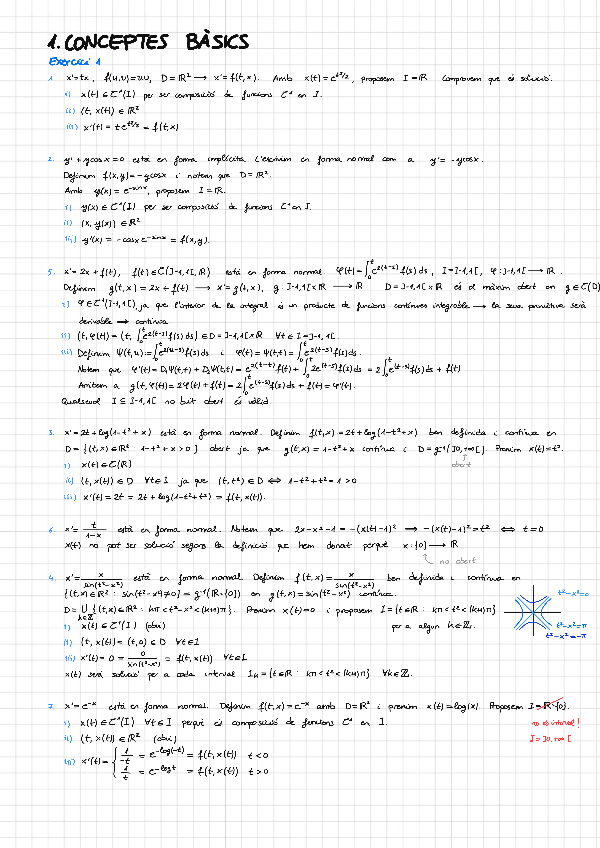 1. CONCEPTES BÀSICS
Exercici 1
1. x' = tx, f(u,v) = uv, D = ℝ² ⟶ x' = f(t,x). Amb x(t) = e^{t²/2}, proposem I = ℝ. Comprovem que és solució.
i) x(t) ∈ C¹(I) per ser composició de funcions C¹ en I.
ii) (t, x(t)) ∈ ℝ²
iii) x'(t) = t e^{t²/2} = f(t,x)
2. y' + y cos x = 0 està en forma implícita. L'escrivim en forma normal com a y' = -y cos x.
Definim f(x,y) = -y cos x i notem que D = ℝ².
Amb y(x) = e^{-sin x}, proposem I = ℝ.
i) y(x) ∈ C¹(I) per ser composició de funcions C¹ en I.
ii) (x, y(x)) ∈ ℝ²
iii) y'(x) = -cos x e^{-sin x} = f(x,y).
5. x' = 2x + f(t), f(t) ∈ C(]-1,1[, ℝ) està en forma normal. φ(t) = ∫₀ᵗ e^{2(t-s)} f(s) ds, I = ]-1,1[, φ: ]-1,1[ ⟶ ℝ.
Definim g(t,x) = 2x + f(t) ⟶ x' = g(t,x), g: ]-1,1[ × ℝ ⟶ ℝ D = ]-1,1[ × ℝ és el màxim obert on g ∈ C(D)
i) φ ∈ C¹(]-1,1[), ja que l'interior de la integral és un producte de funcions contínues integrable ⟶ la seva primitiva serà
derivable ⟶ contínua
ii) (t, φ(t)) = (t, ∫₀ᵗ e^{2(t-s)} f(s) ds) ∈ D = ]-1,1[ × ℝ ∀t ∈ I = ]-1,1[
iii) Definim Ψ(t,u) := ∫₀ᵘ e^{2(t-s)} f(s) ds i φ(t) = Ψ(t,t) = ∫₀ᵗ e^{2(t-s)} f(s) ds.
Notem que φ'(t) = D₁Ψ(t,t) + D₂Ψ(t,t) = e^{2(t-t)} f(t) + ∫₀ᵗ 2e^{(t-s)} f(s) ds = 2∫₀ᵗ e^{(t-s)} f(s) ds + f(t)
Anitem a g(t, φ(t)) = 2φ(t) + f(t) = 2∫₀ᵗ e^{(t-s)} f(s) ds + f(t) = φ'(t).
Qualsevol I ⊆ ]-1,1[ no buit obert és vàlid.
3. x' = 2t + log(1-t²+x) està en forma normal. Definim f(t,x) = 2t + log(1-t²+x) ben definida i contínua en
D = {(t,x) ∈ ℝ² : 1-t²+x > 0} obert ja que g(t,x) = 1-t²+x contínua i D = g⁻¹(]0,+∞[). Prenim x(t) = t².
obert
i) x(t) ∈ C(ℝ)
ii) (t, x(t)) ∈ D ∀t ∈ I ja que (t, t²) ∈ D ⟺ 1-t²+t² = 1 > 0
iii) x'(t) = 2t = 2t + log(1-t²+t²) = f(t, x(t)).
6. x' = t/(1-x) està en forma normal. Notem que 2x-x²-1 = -(x(t)-1)² ⟶ -(x(t)-1)² = t² ⟺ t = 0
x(t) no pot ser solució segons la definició que hem donat perquè x: {0} ⟶ ℝ
no obert
4. x' = x/sin(t²-x²) està en forma normal. Definim f(t,x) = x/sin(t²-x²) ben definida i contínua en
{(t,x) ∈ ℝ² : sin(t²-x²) ≠ 0} = g⁻¹(ℝ\{0}) on g(t,x) = sin(t²-x²) contínua.
D = ∪_{k∈ℤ} {(t,x) ∈ ℝ² : kπ < t²-x² < (k+1)π}. Prenim x(t) = 0 i proposem I = {t ∈ ℝ : kπ < t² < (k+1)π}
i) x(t) ∈ C¹(I) (obvi) per a algun k ∈ ℤ.
ii) (t, x(t)) = (t, 0) ∈ D ∀t ∈ I
iii) x'(t) = 0 = 0/sin(t²-x²) = f(t, x(t)) ∀t ∈ I.
x(t) serà solució per a cada interval I_k = {t ∈ ℝ : kπ < t² < (k+1)π} ∀k ∈ ℤ.
t²-x² = 0
t²-x² = π
t²-x² = -π
7. x' = e^{-x} està en forma normal. Definim f(t,x) = e^{-x} amb D = ℝ² i prenim x(t) = log|x|. Proposem I = ℝ\{0}.
i) x(t) ∈ C¹(I) ∀t ∈ I perquè és composició de funcions C¹ en I.
no és interval!
ii) (t, x(t)) ∈ ℝ² (obvi)
I = ]0, +∞[
iii) x'(t) = { 1/-t = e^{-log(-t)} = f(t, x(t)) t < 0
1/t = e^{-log t} = f(t, x(t)) t > 0